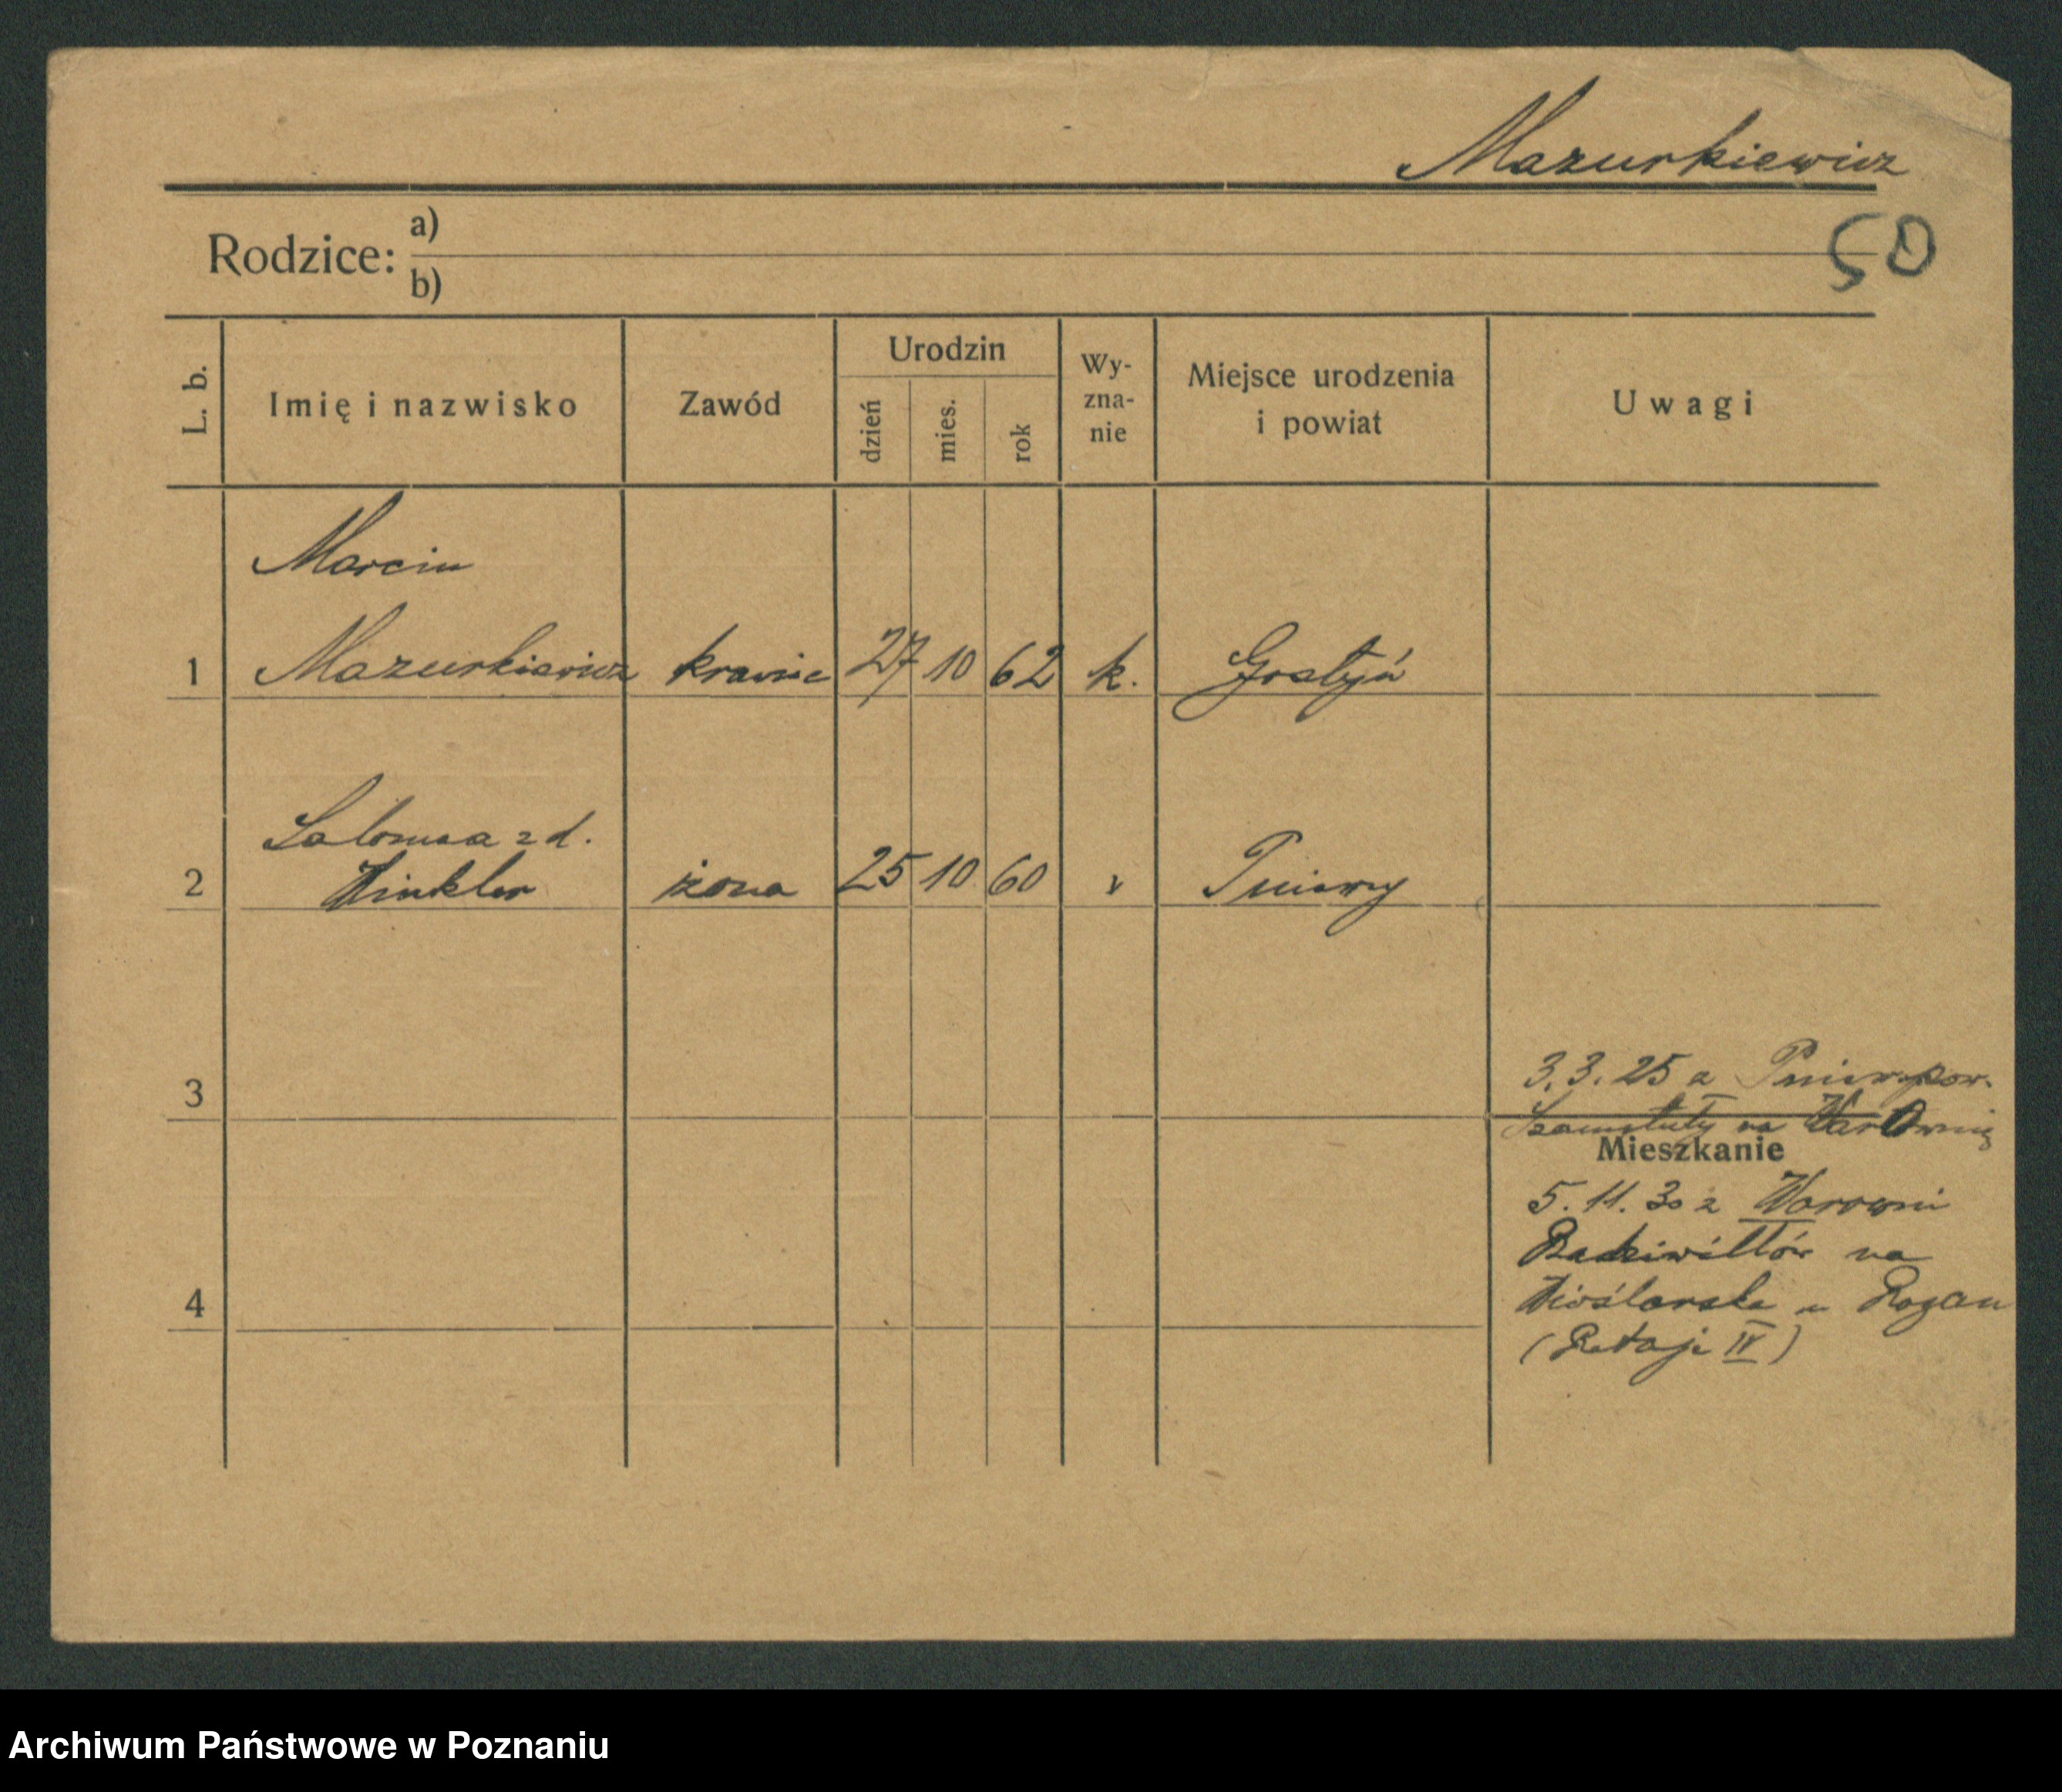 Mazurkiewicz
50
Rodzice: a)
b)
L. b.
Imię i nazwisko
Zawód
Urodzin
dzień
mies.
rok
Wy-
zna-
nie
Miejsce urodzenia
i powiat
Uwagi
Marcin
1 Mazurkiewicz krawiec 27 10 62 k. Gostyń
Salomea z d.
2 Winkler żona 25 10 60 Pniewy
3
3.3.25 z Pniew pow.
Szamotuły na
Mieszkanie
5.11.30 z Warowni
Radziwiłłów na
4
Wioślarska u Rogan
(Rataje IV)
Archiwum Państwowe w Poznaniu